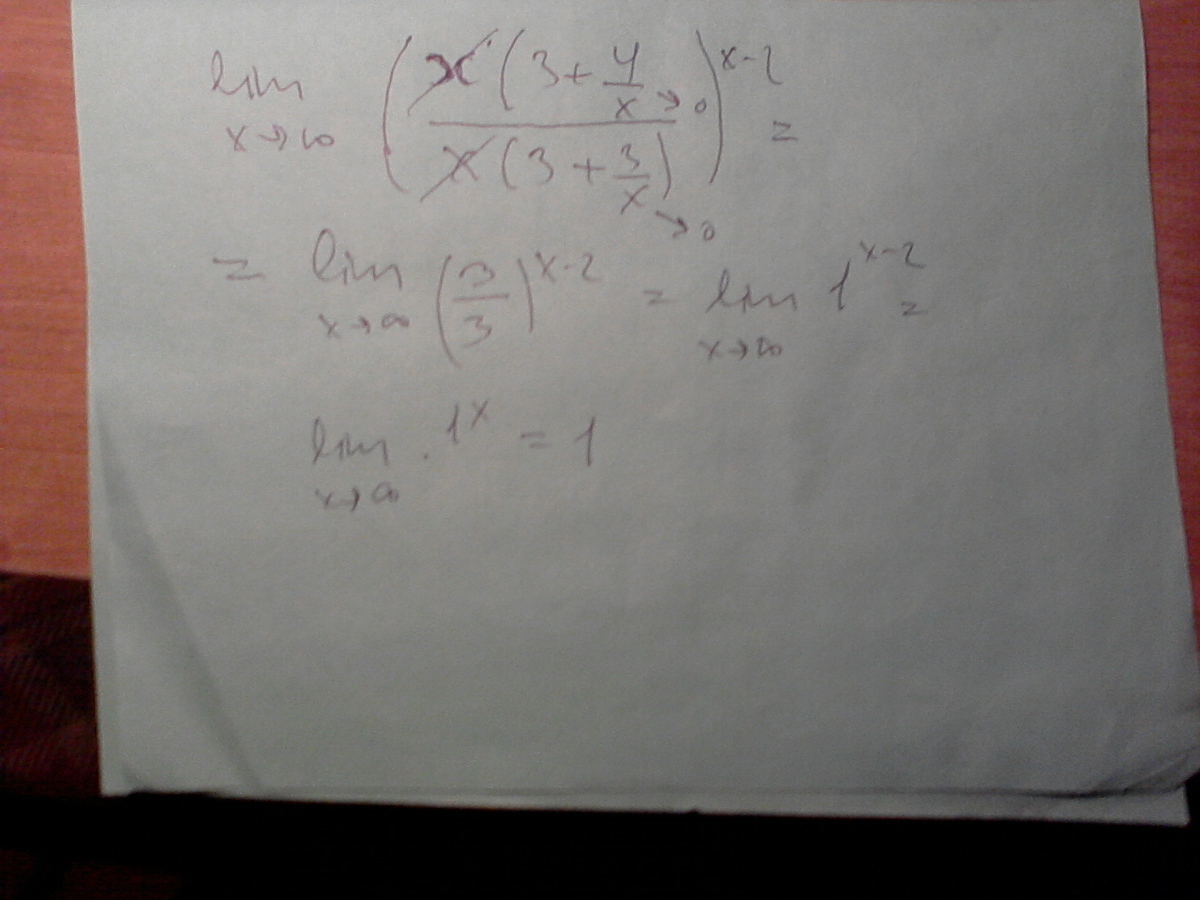 lim x→∞ (x(3+4/x→0) / x(3+3/x)→0)^x-2 =
= lim x→∞ (3/3)^x-2 = lim x→∞ 1^x-2 =
lim x→∞ . 1^x = 1